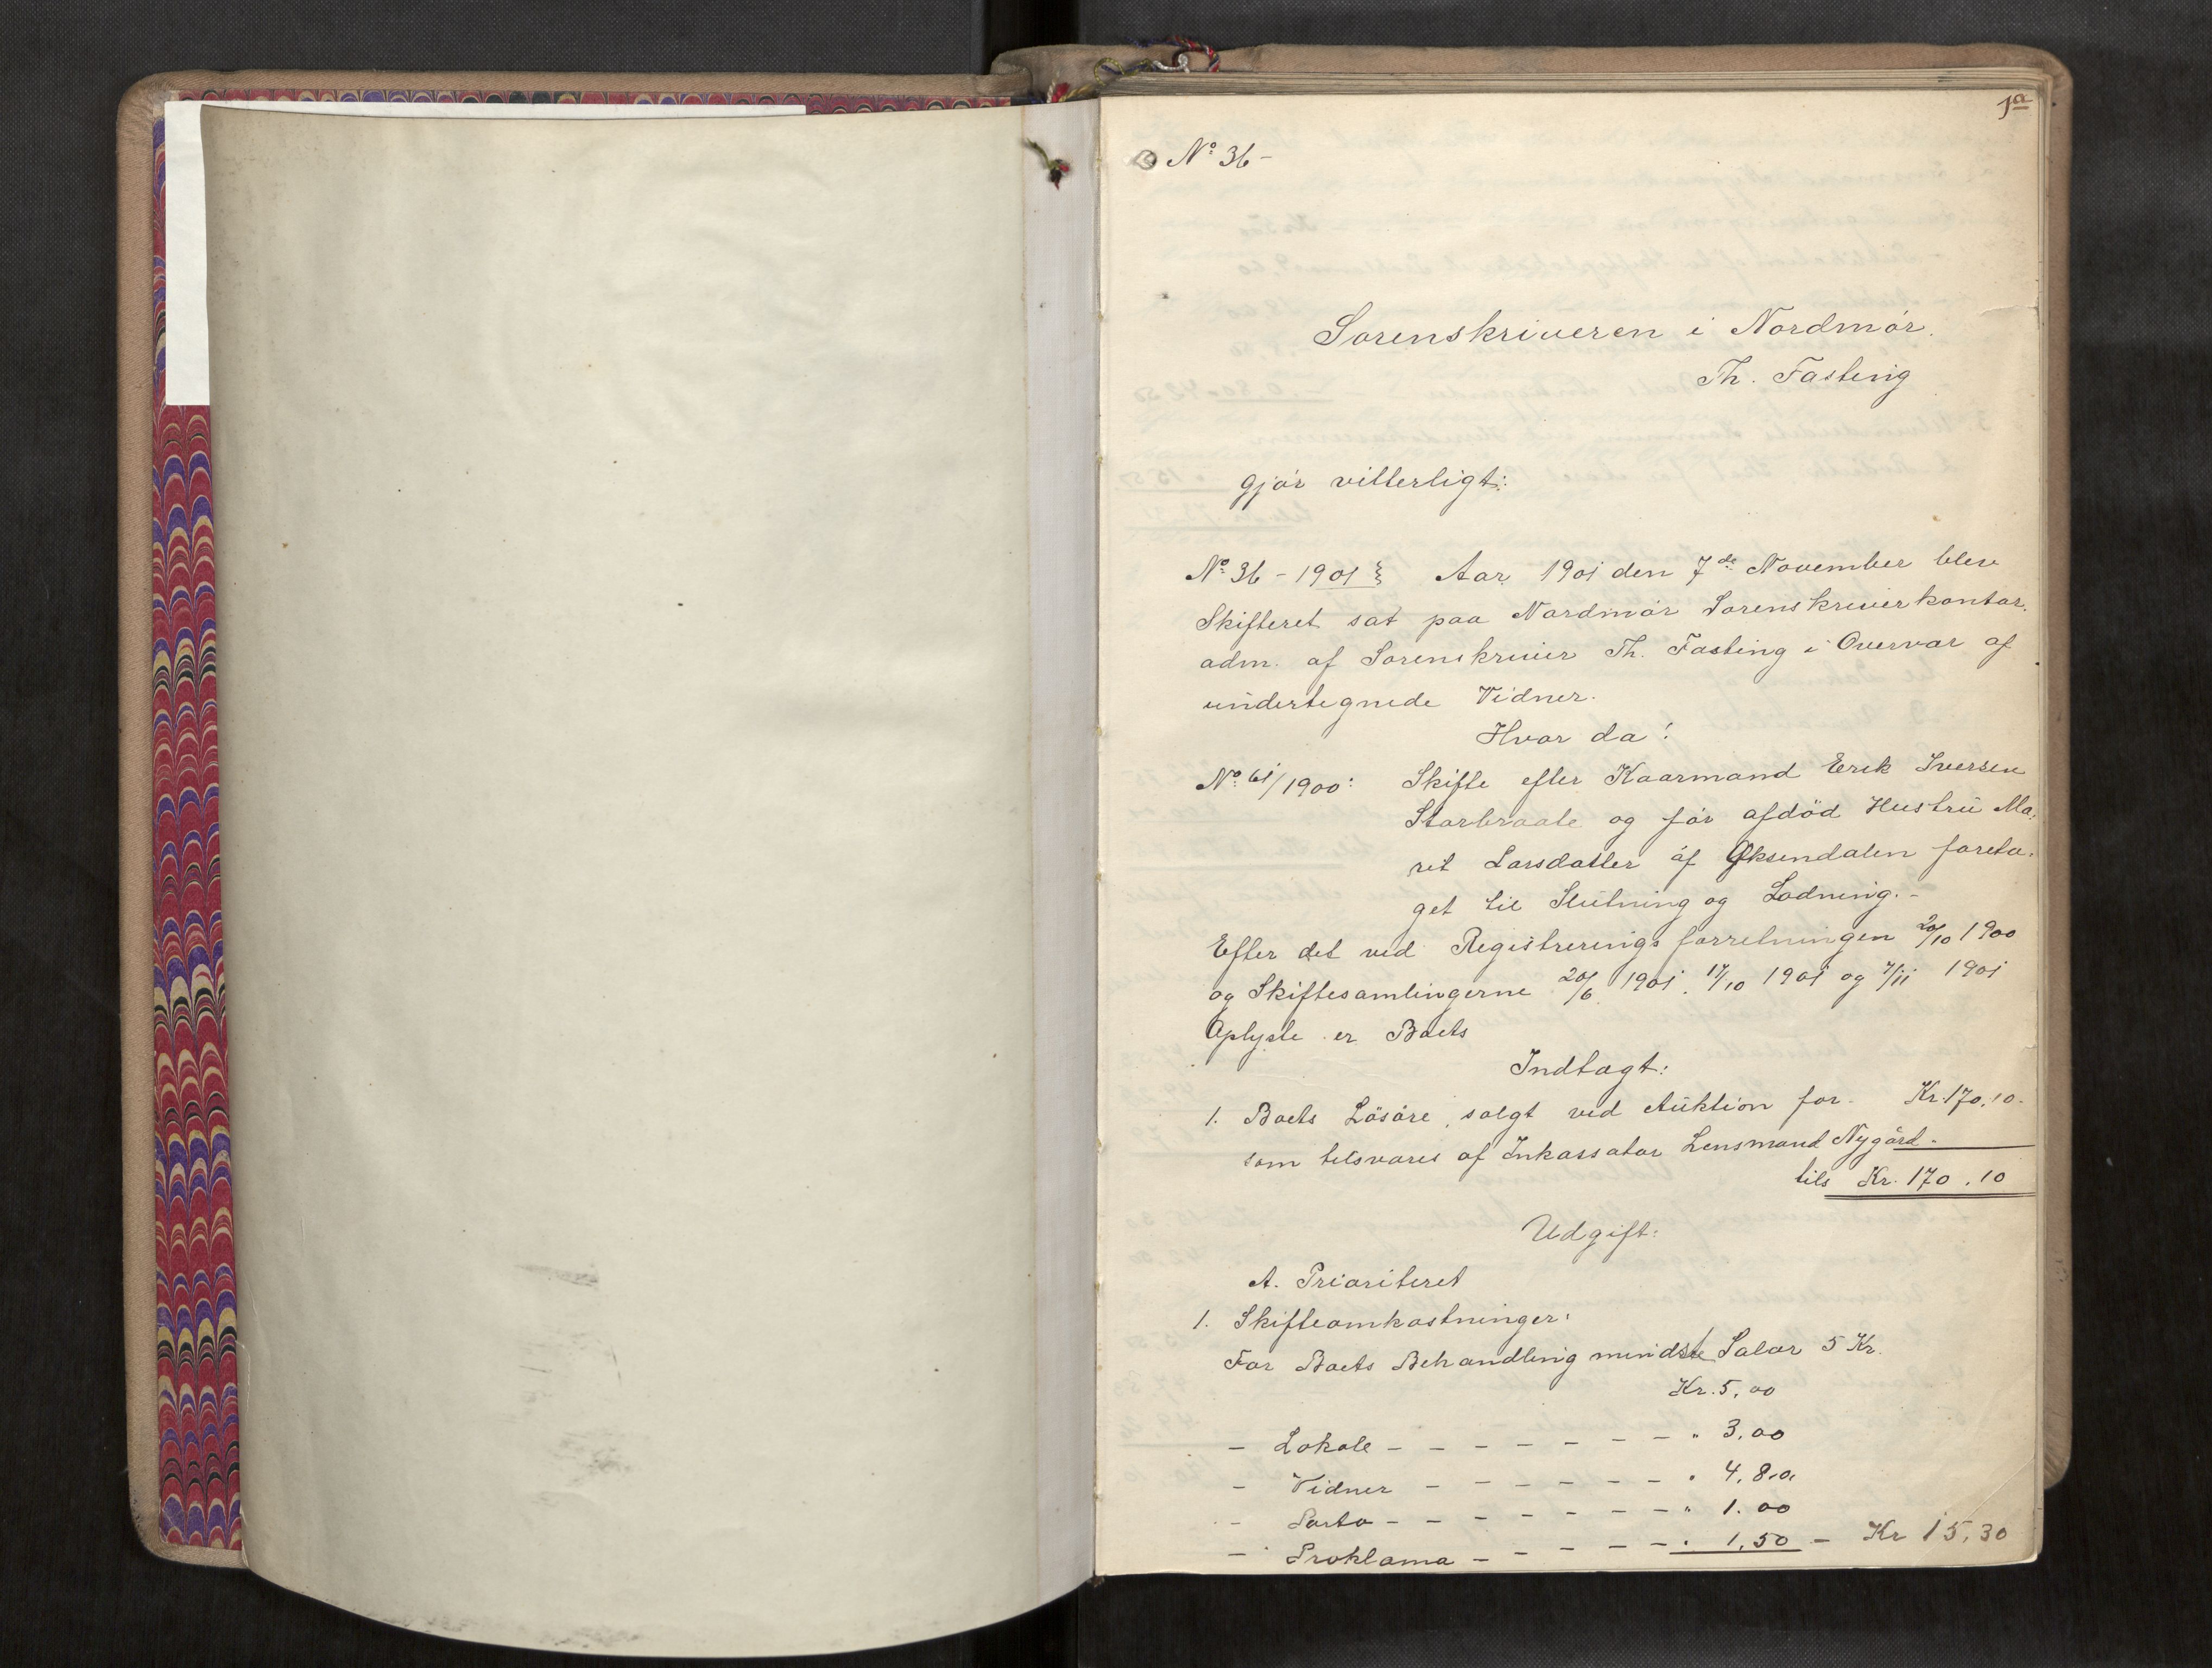 1a
No 36 –
Sorenskriveren i Nordmör.
Th. Fasting
gjör vitterligt:
No 36 – 1901 Aar 1901 den 7de November blev
Skifteret sat paa Nordmör Sorenskriverkontor.
adm. af Sorenskriver Th. Fasting i Overvær af
undertegnede Vidner.
Hvor da:
No 61/1900: Skifte efter Kaarmand Erik Iversen
Storbraate og för afdöd Hustru Ma-
rit Larsdatter af Öksendalen foreta-
get til Slutning og Lodning. –
Efter det ved Registreringsforretningen 20/10 1900
og Skiftesamlingerne 20/6 1901. 17/10 1901 og 7/11 1901
Oplyste er Boets
Indtægt:
1. Boets Lösöre, solgt ved Auktion for Kr. 170,10.
som tilsvares af Inkassator Lensmand Nygård –
tils Kr. 170.10
Udgift:
A. Prioriteret
1. Skifteomkostninger:
For Boets Behandling mindste Salær 5 Kr.
Kr. 5,00
– Lokale – – – – – – – " 3,00
– Vidner – – – – – – – " 4,80
– Porto – – – – – – – " 1.00
– Proklama – – – – – – " 1,50 – Kr 15,30